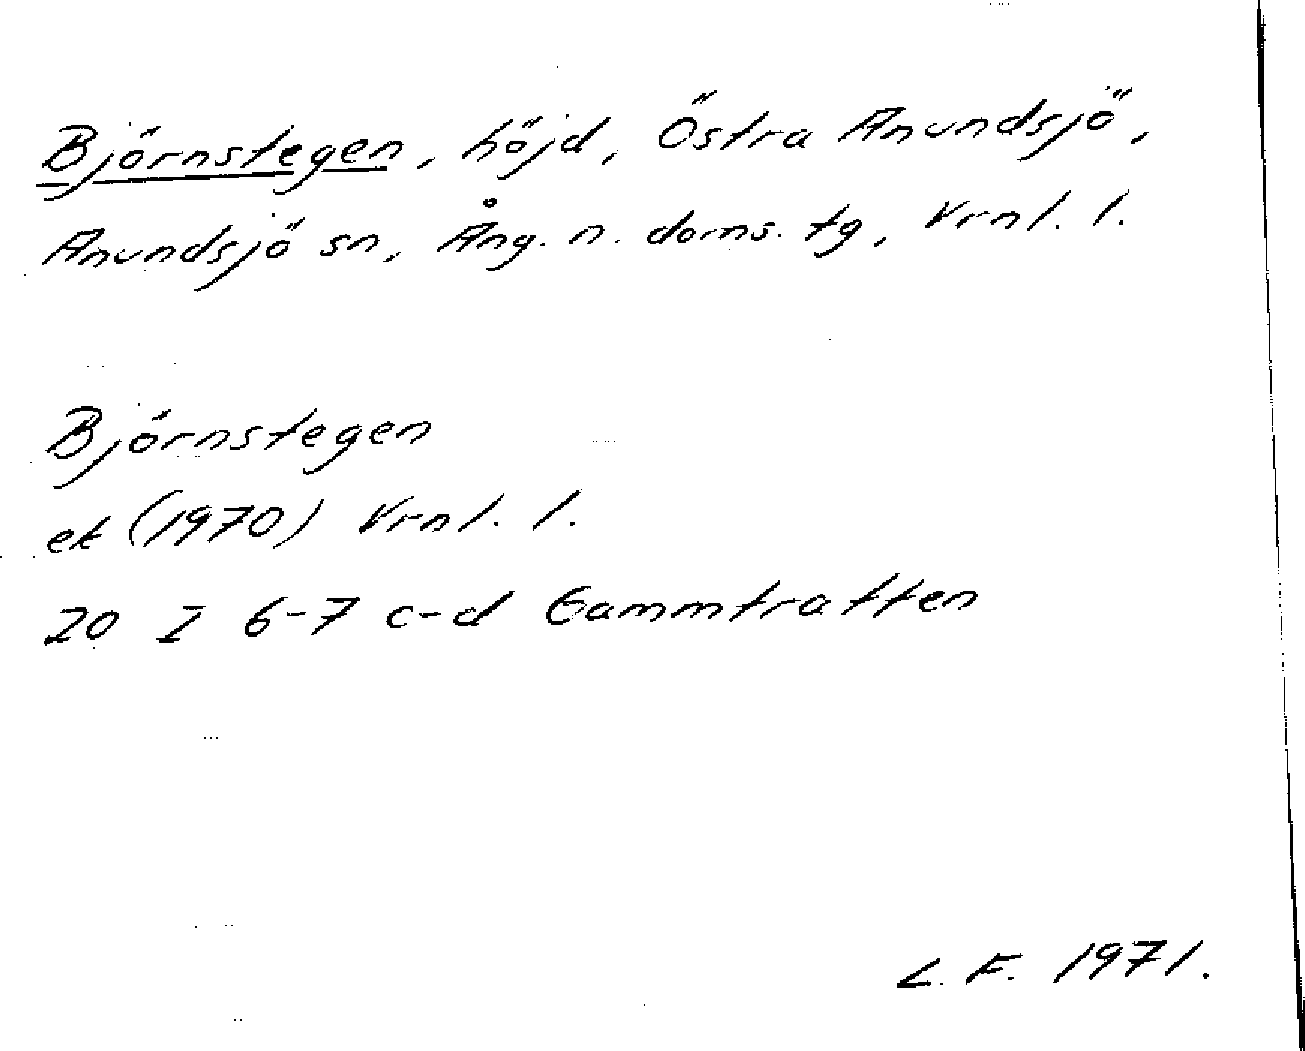 Björnstegen, höjd, Östra Anundsjö,
Anundsjö sn, Ång. n. doms. tg, Vrnl. l.
Björnstegen
ek (1970) Vrnl. l.
20 I 6-7 c-d Gammtratten
L. F. 1971.